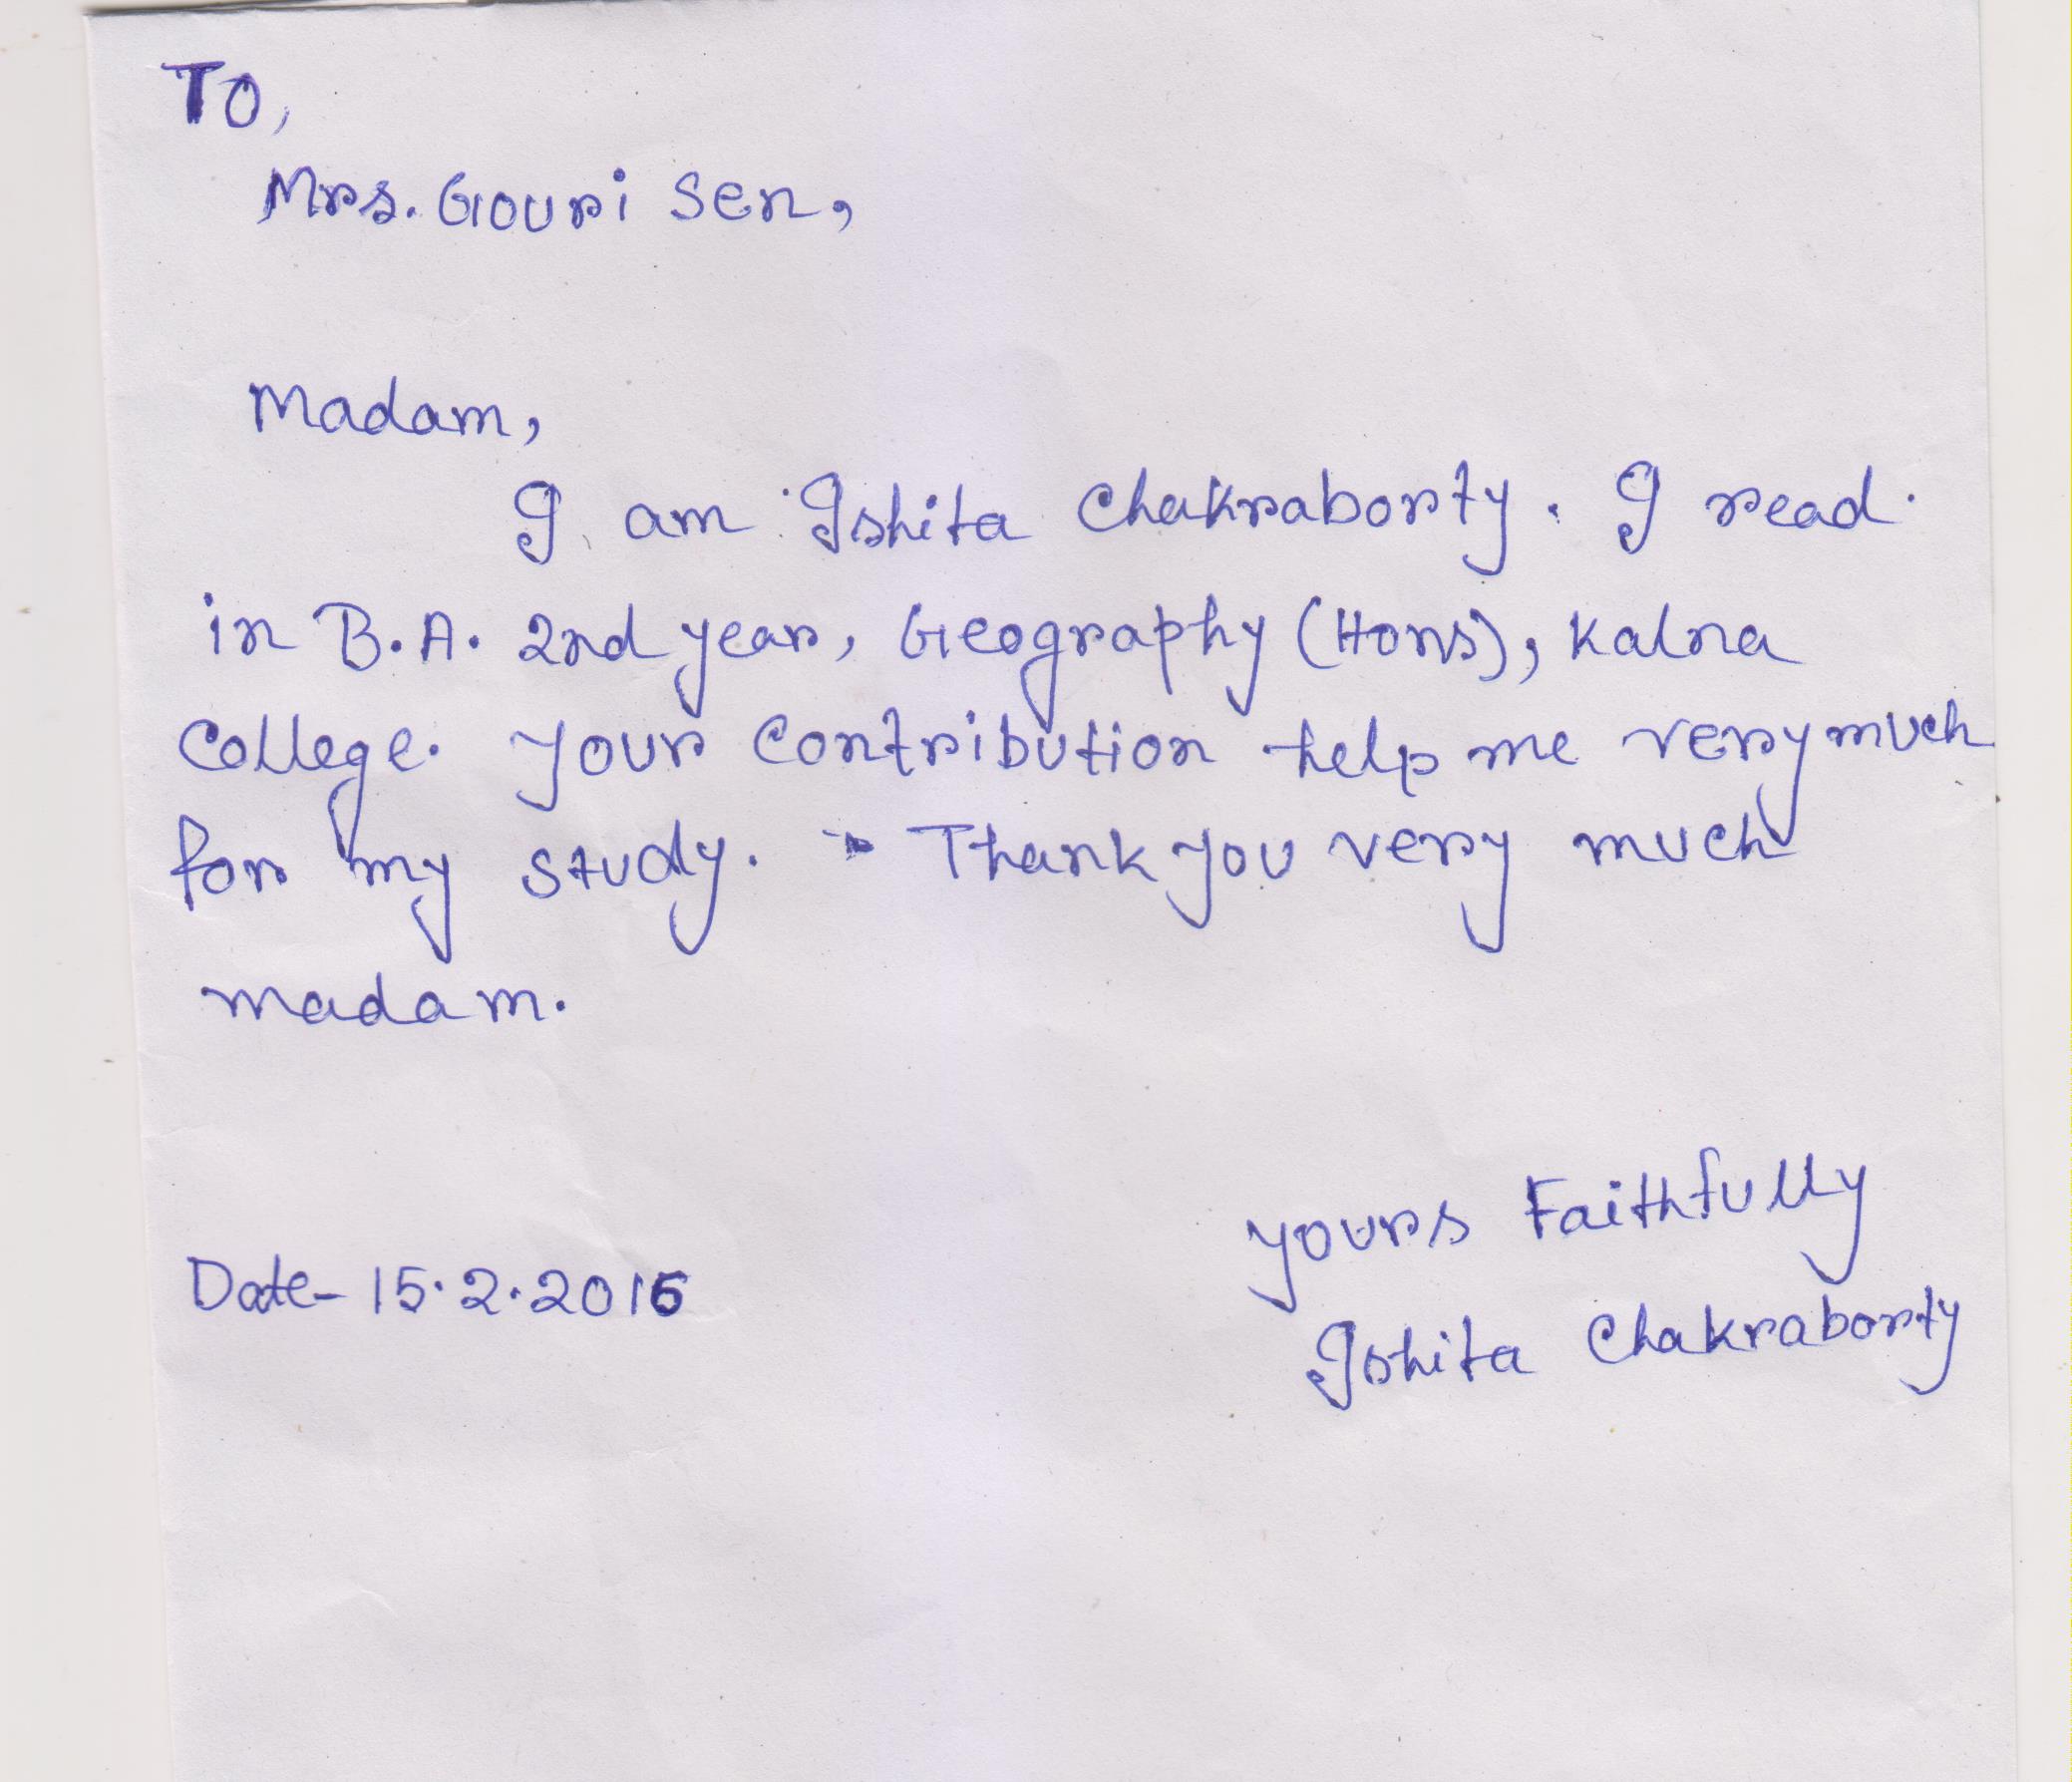 TO,
Mrs. Gouri Sen,
Madam,
I am Ishita Chakraborty. I read
in B.A. 2nd year, Geography (Hons), Kalna
College. Your contribution help me very much
for my study. Thank you very much
madam.
Yours Faithfully
Date- 15.2.2016
Ishita Chakraborty